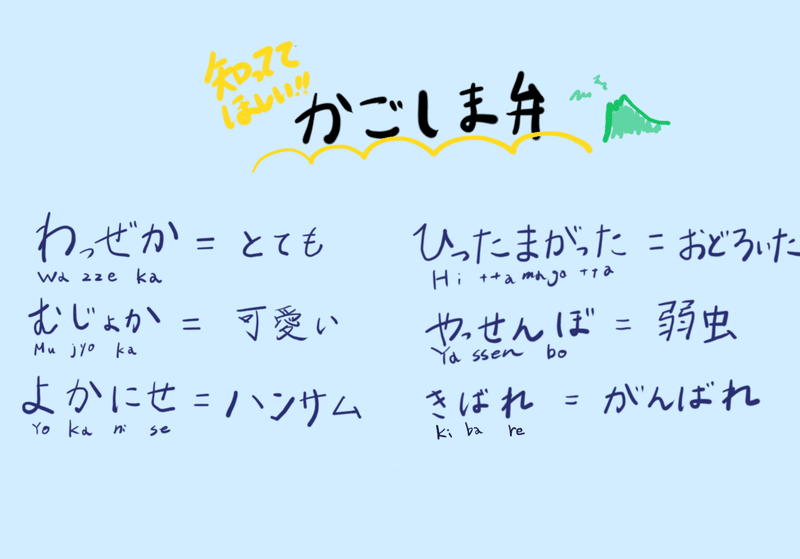 知ってて
ほしい!!
かごしま弁
わっぜか = とても
Wa zze ka
むじょか = 可愛い
Mu jyo ka
よかにせ = ハンサム
Yo ka ni se
ひったまがった = おどろいた
Hi tta ma ga tta
やっせんぼ = 弱虫
Ya ssen bo
きばれ = がんばれ
ki ba re